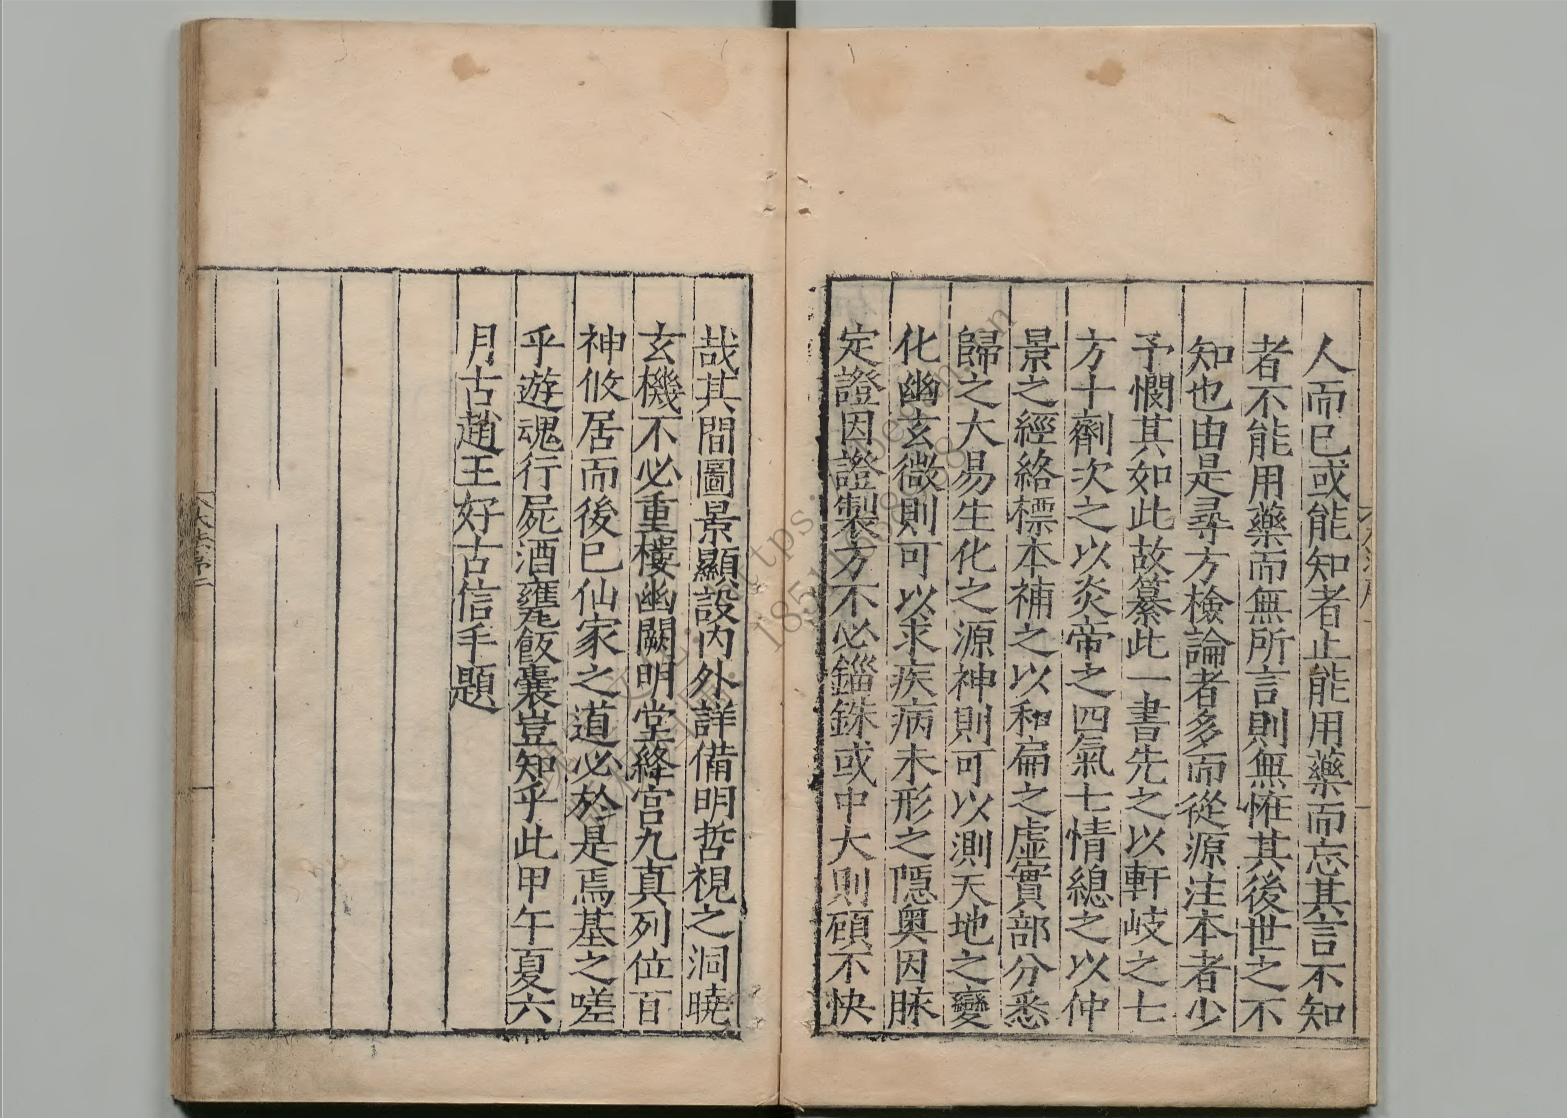 人而已或能知者止能用藥而忘其言不知
者不能用藥而無所言則無惟其後世之不
知也由是尋方檢論者多而從源注本者少
予憫其如此故纂此一書先之以軒岐之七
方十劑次之以炎帝之四氣七情總之以仲
景之經絡標本補之以和扁之虛實部分悉
歸之大易生化之源神則可以測天地之變
化幽玄微則可以求疾病未形之隱奧因脉
定證因證製方不必錙銖或中大則碩不快
哉其間圖景顯設内外詳備明哲視之洞曉
玄機不必重樓幽闕明堂絳宮九真列位百
神攸居而後已仙家之道必於是焉基之嗟
乎遊魂行屍酒甕飯囊豈知乎此甲午夏六
月古趙王好古信手題